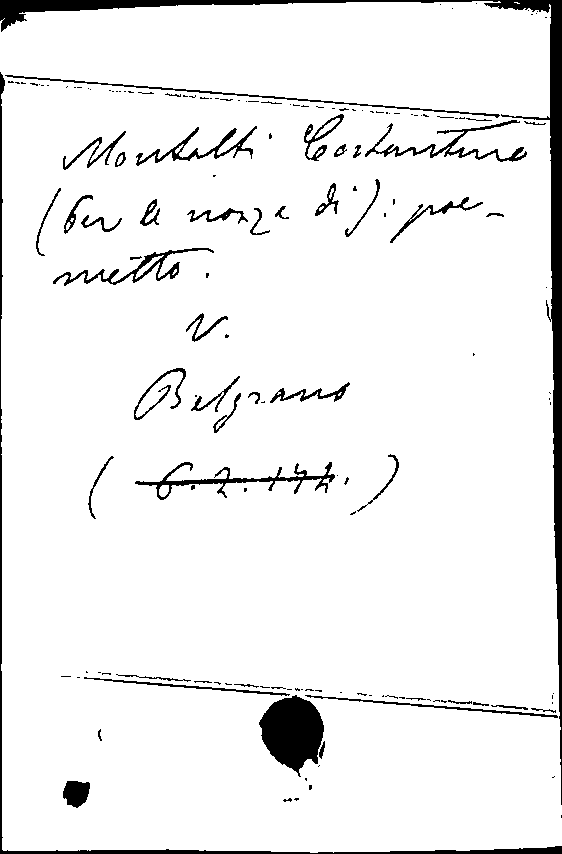 Montalti Costantino
(Per le nozze di): poe-
metto.
V.
Belgrano
(6.2.174.)